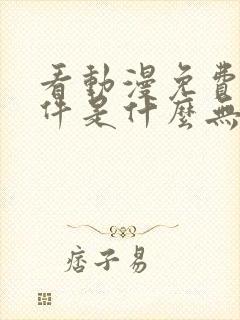 看動漫免費
件是什麼無
痞子易